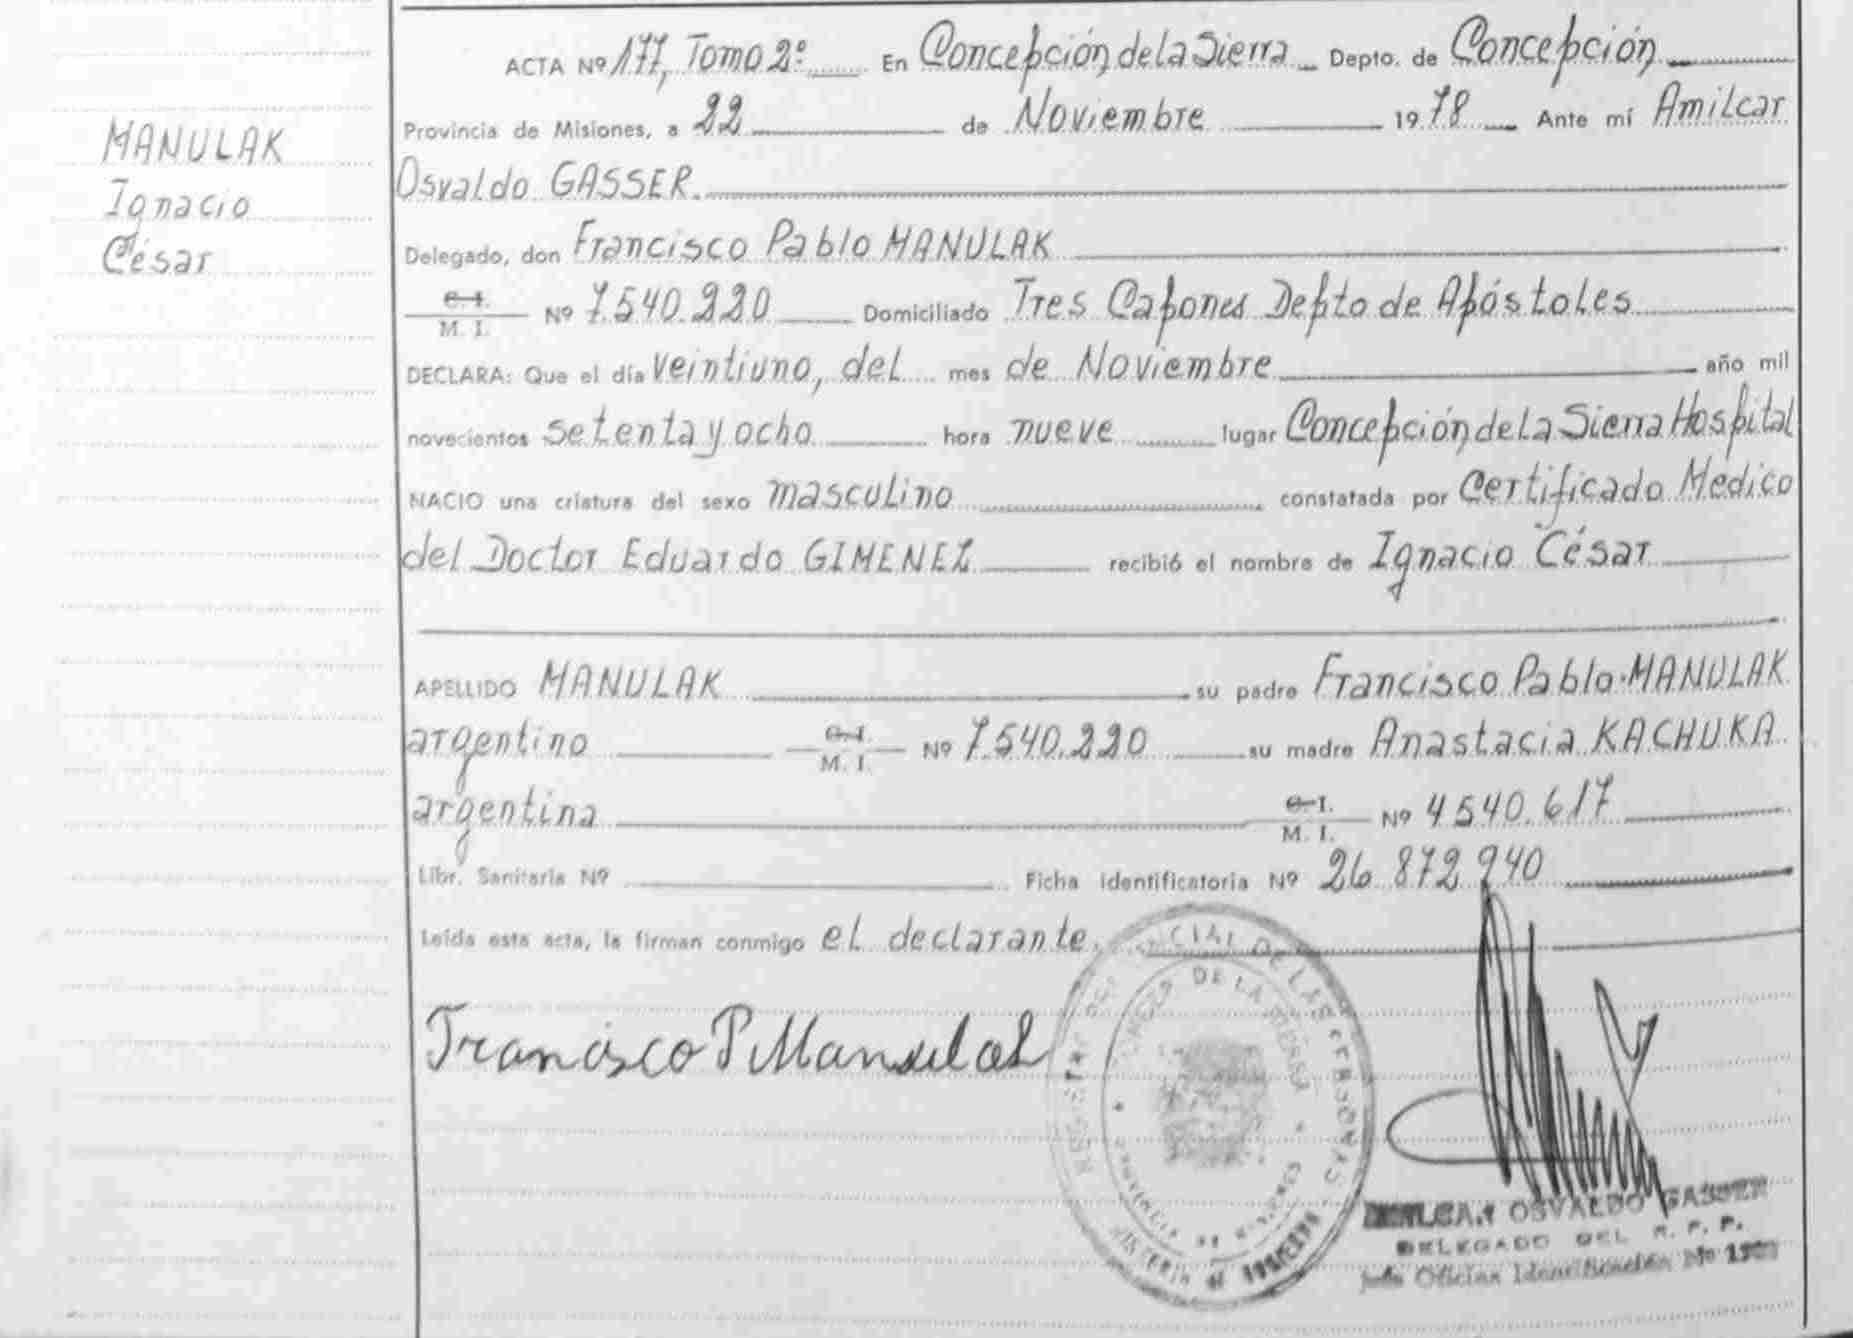 MANULAK
Ignacio
César
ACTA Nº 177, Tomo 2º En Concepción de la Sierra Depto. de Concepción
Provincia de Misiones, a 22 de Noviembre 1978 Ante mí Amilcar
Osvaldo GASSER.
Delegado, don Francisco Pablo MANULAK
C. I.
M. I. Nº 7.540.220 Domiciliado Tres Capones Depto de Apóstoles
DECLARA: Que el día veintiuno, del mes de Noviembre año mil
novecientos setenta y ocho hora nueve lugar Concepción de la Sierra Hospital
NACIO una criatura del sexo masculino constatada por Certificado Medico
del Doctor Eduardo GIMENEZ recibió el nombre de Ignacio César
APELLIDO MANULAK su padre Francisco Pablo MANULAK
argentino C. I.
M. I. Nº 7.540.220 su madre Anastacia KACHUKA
argentina C. I.
M. I. Nº 4540.617
Libr. Sanitaria Nº Ficha identificatoria Nº 26.872.940
Leída esta acta, la firman conmigo el declarante.
Francisco P Manulak
DE LAS PERSONAS
DE LA SIERRA
PROVINCIA DE MISIONES
OSVALDO GASSER
DELEGADO DEL R. P. P.
Jefe Oficina Identificación Nº